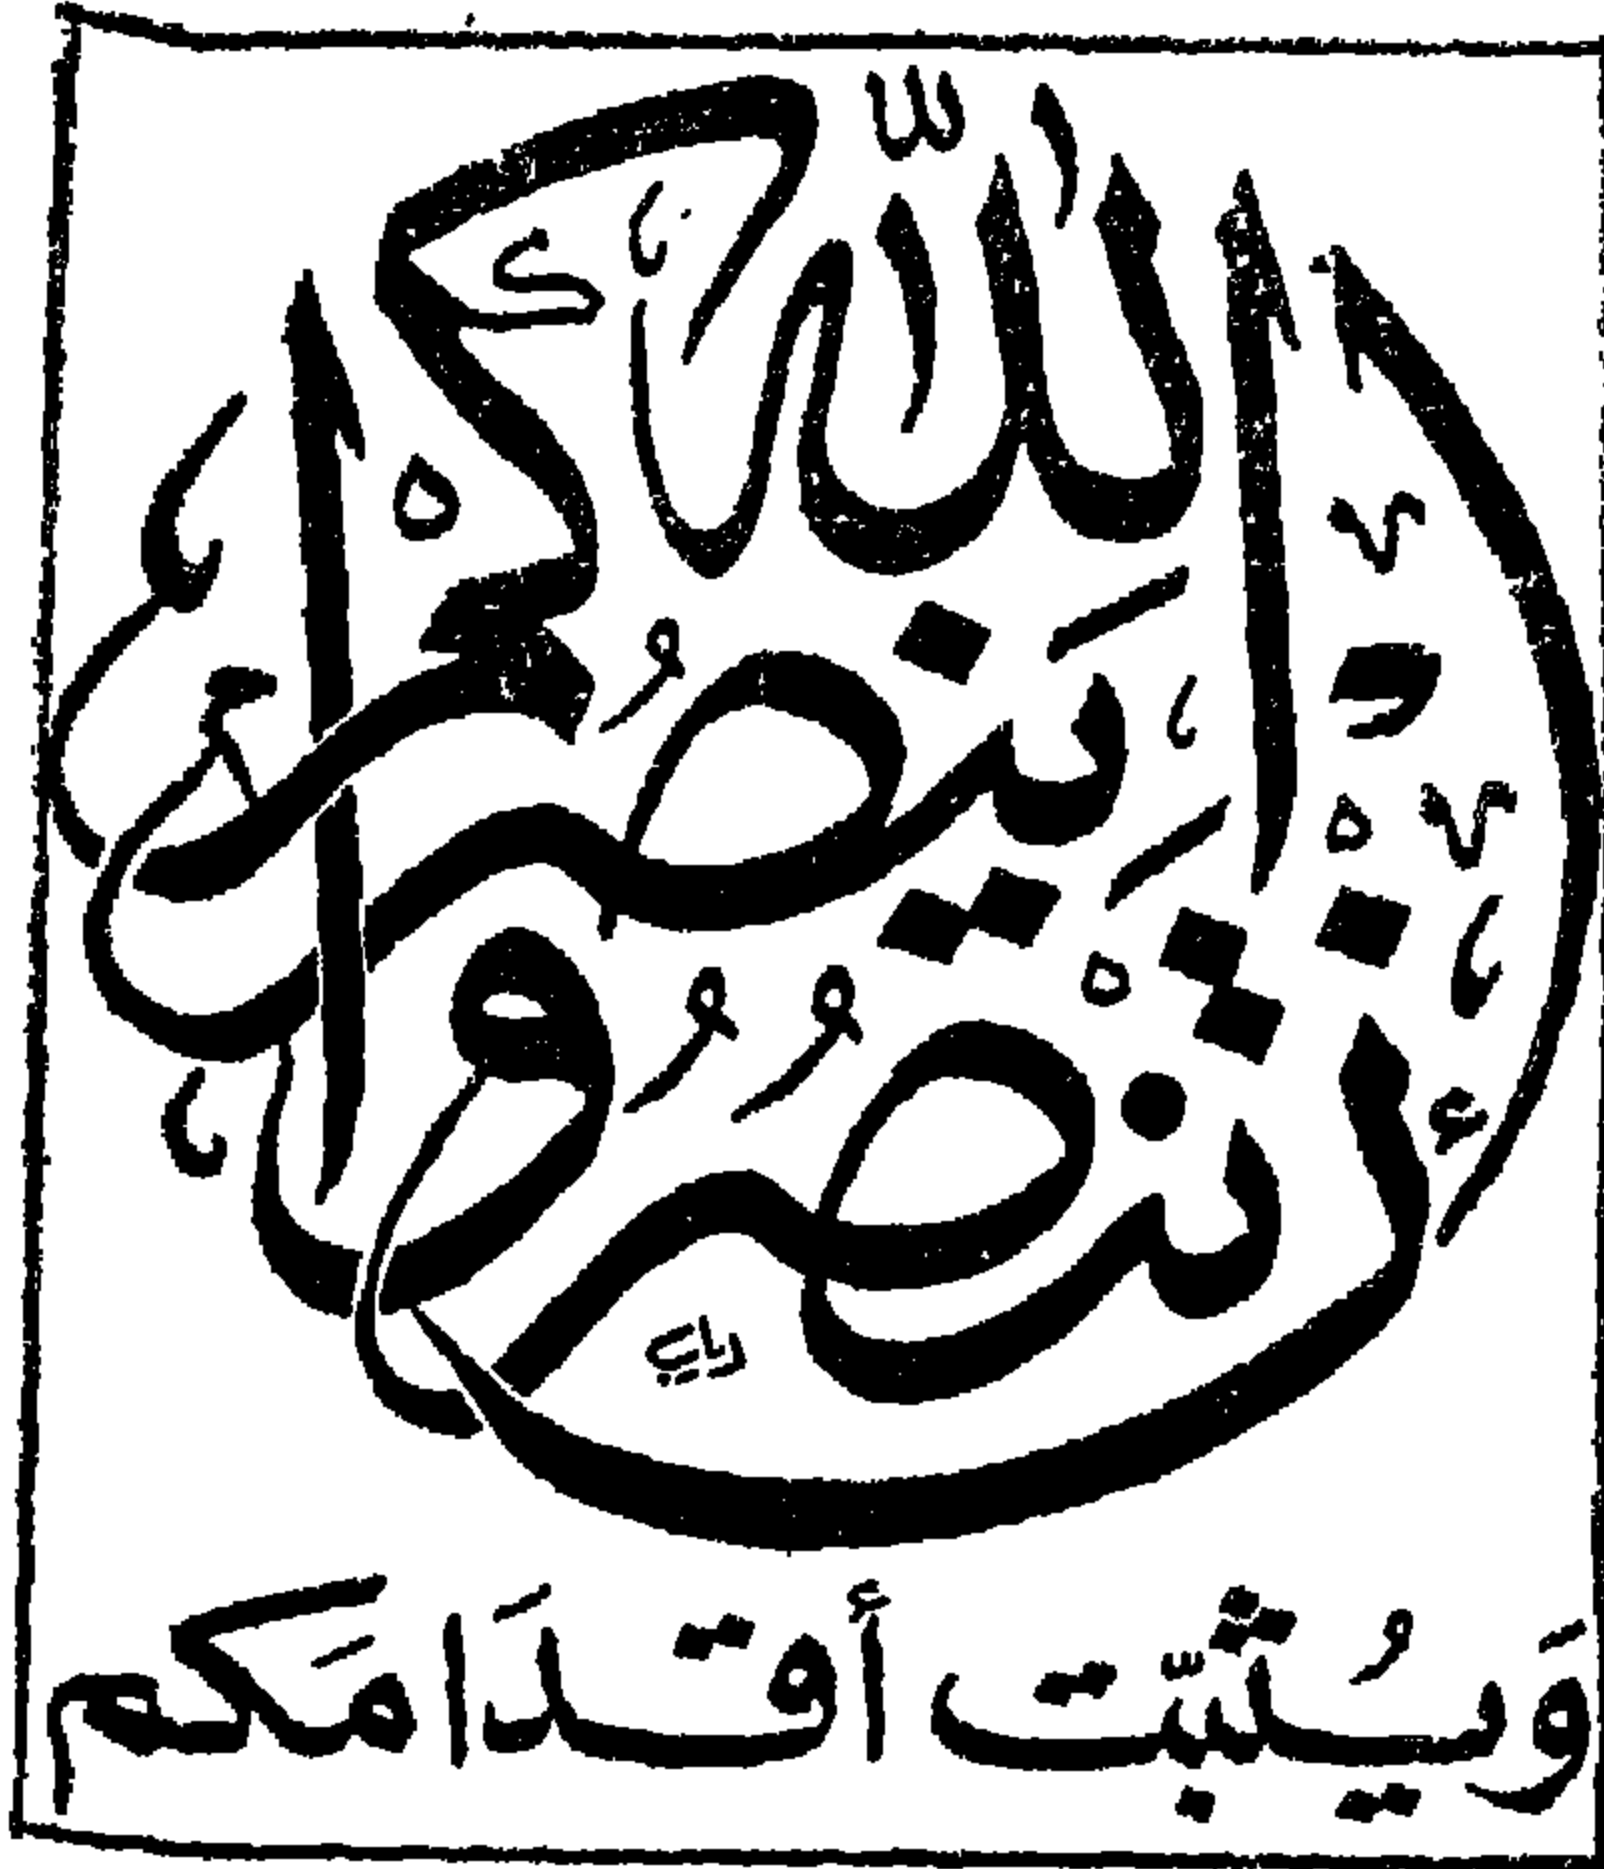 إن تنصروا الله ينصركم
وَيُثَبِّت أَقدَامَكم